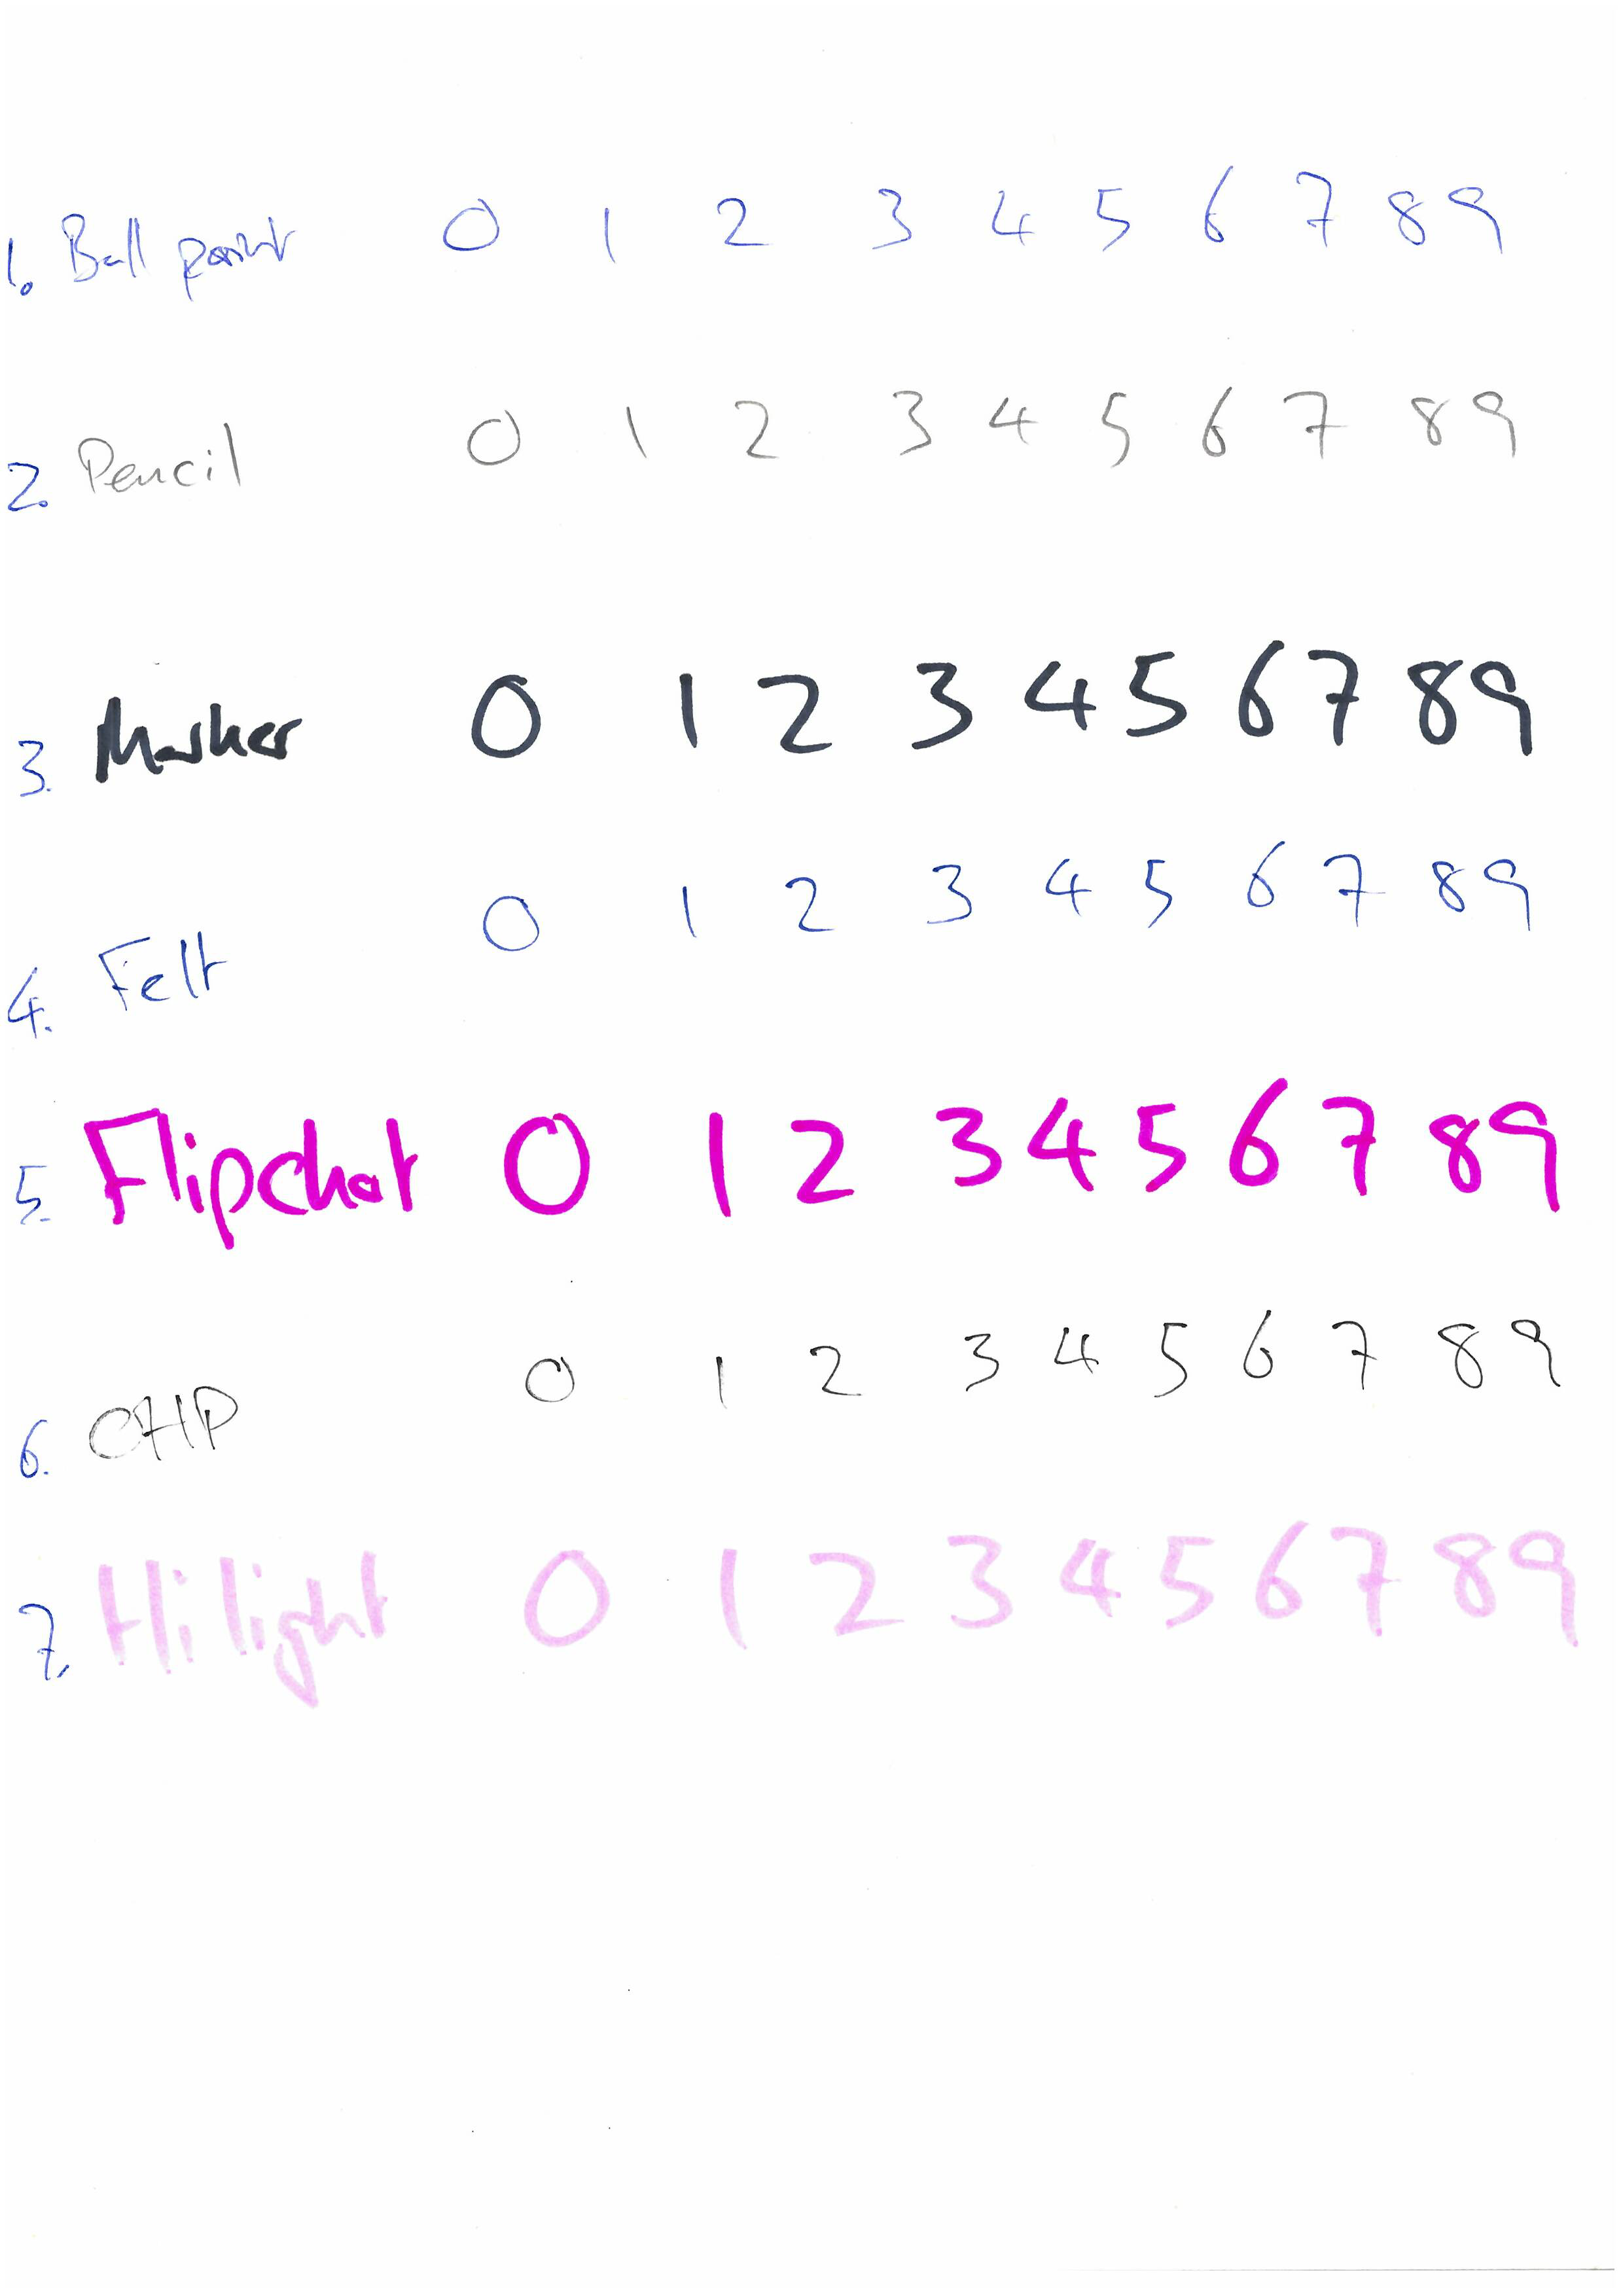 1. Ball point 0 1 2 3 4 5 6 7 8 9
2. Pencil 0 1 2 3 4 5 6 7 8 9
3. Marker 0 1 2 3 4 5 6 7 8 9
4. Felt 0 1 2 3 4 5 6 7 8 9
5. Flipchat 0 1 2 3 4 5 6 7 8 9
6. OHP 0 1 2 3 4 5 6 7 8 9
7. Hilight 0 1 2 3 4 5 6 7 8 9